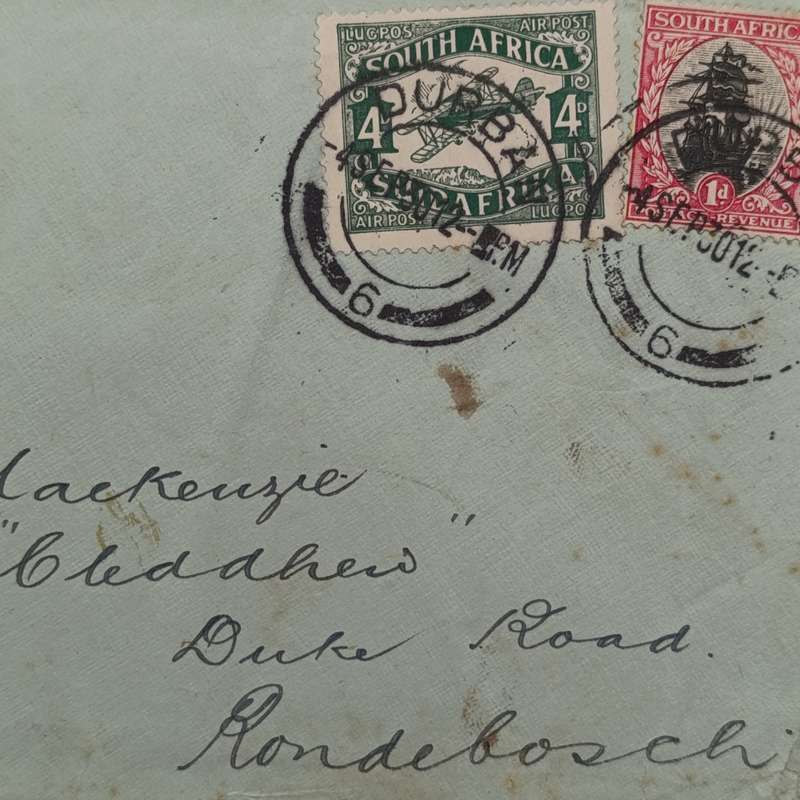 LUGPOS AIR POST
SOUTH AFRICA
4D 4D
SUIDAFRIKA
AIR POST LUGPOS
SOUTH AFRICA
1d
REVENUE
DURBAN
4 SEP 30 12 - PM
6
4 SEP 30 12 -
6
Mackenzie
"Cleddhew"
Duke Road.
Rondebosch